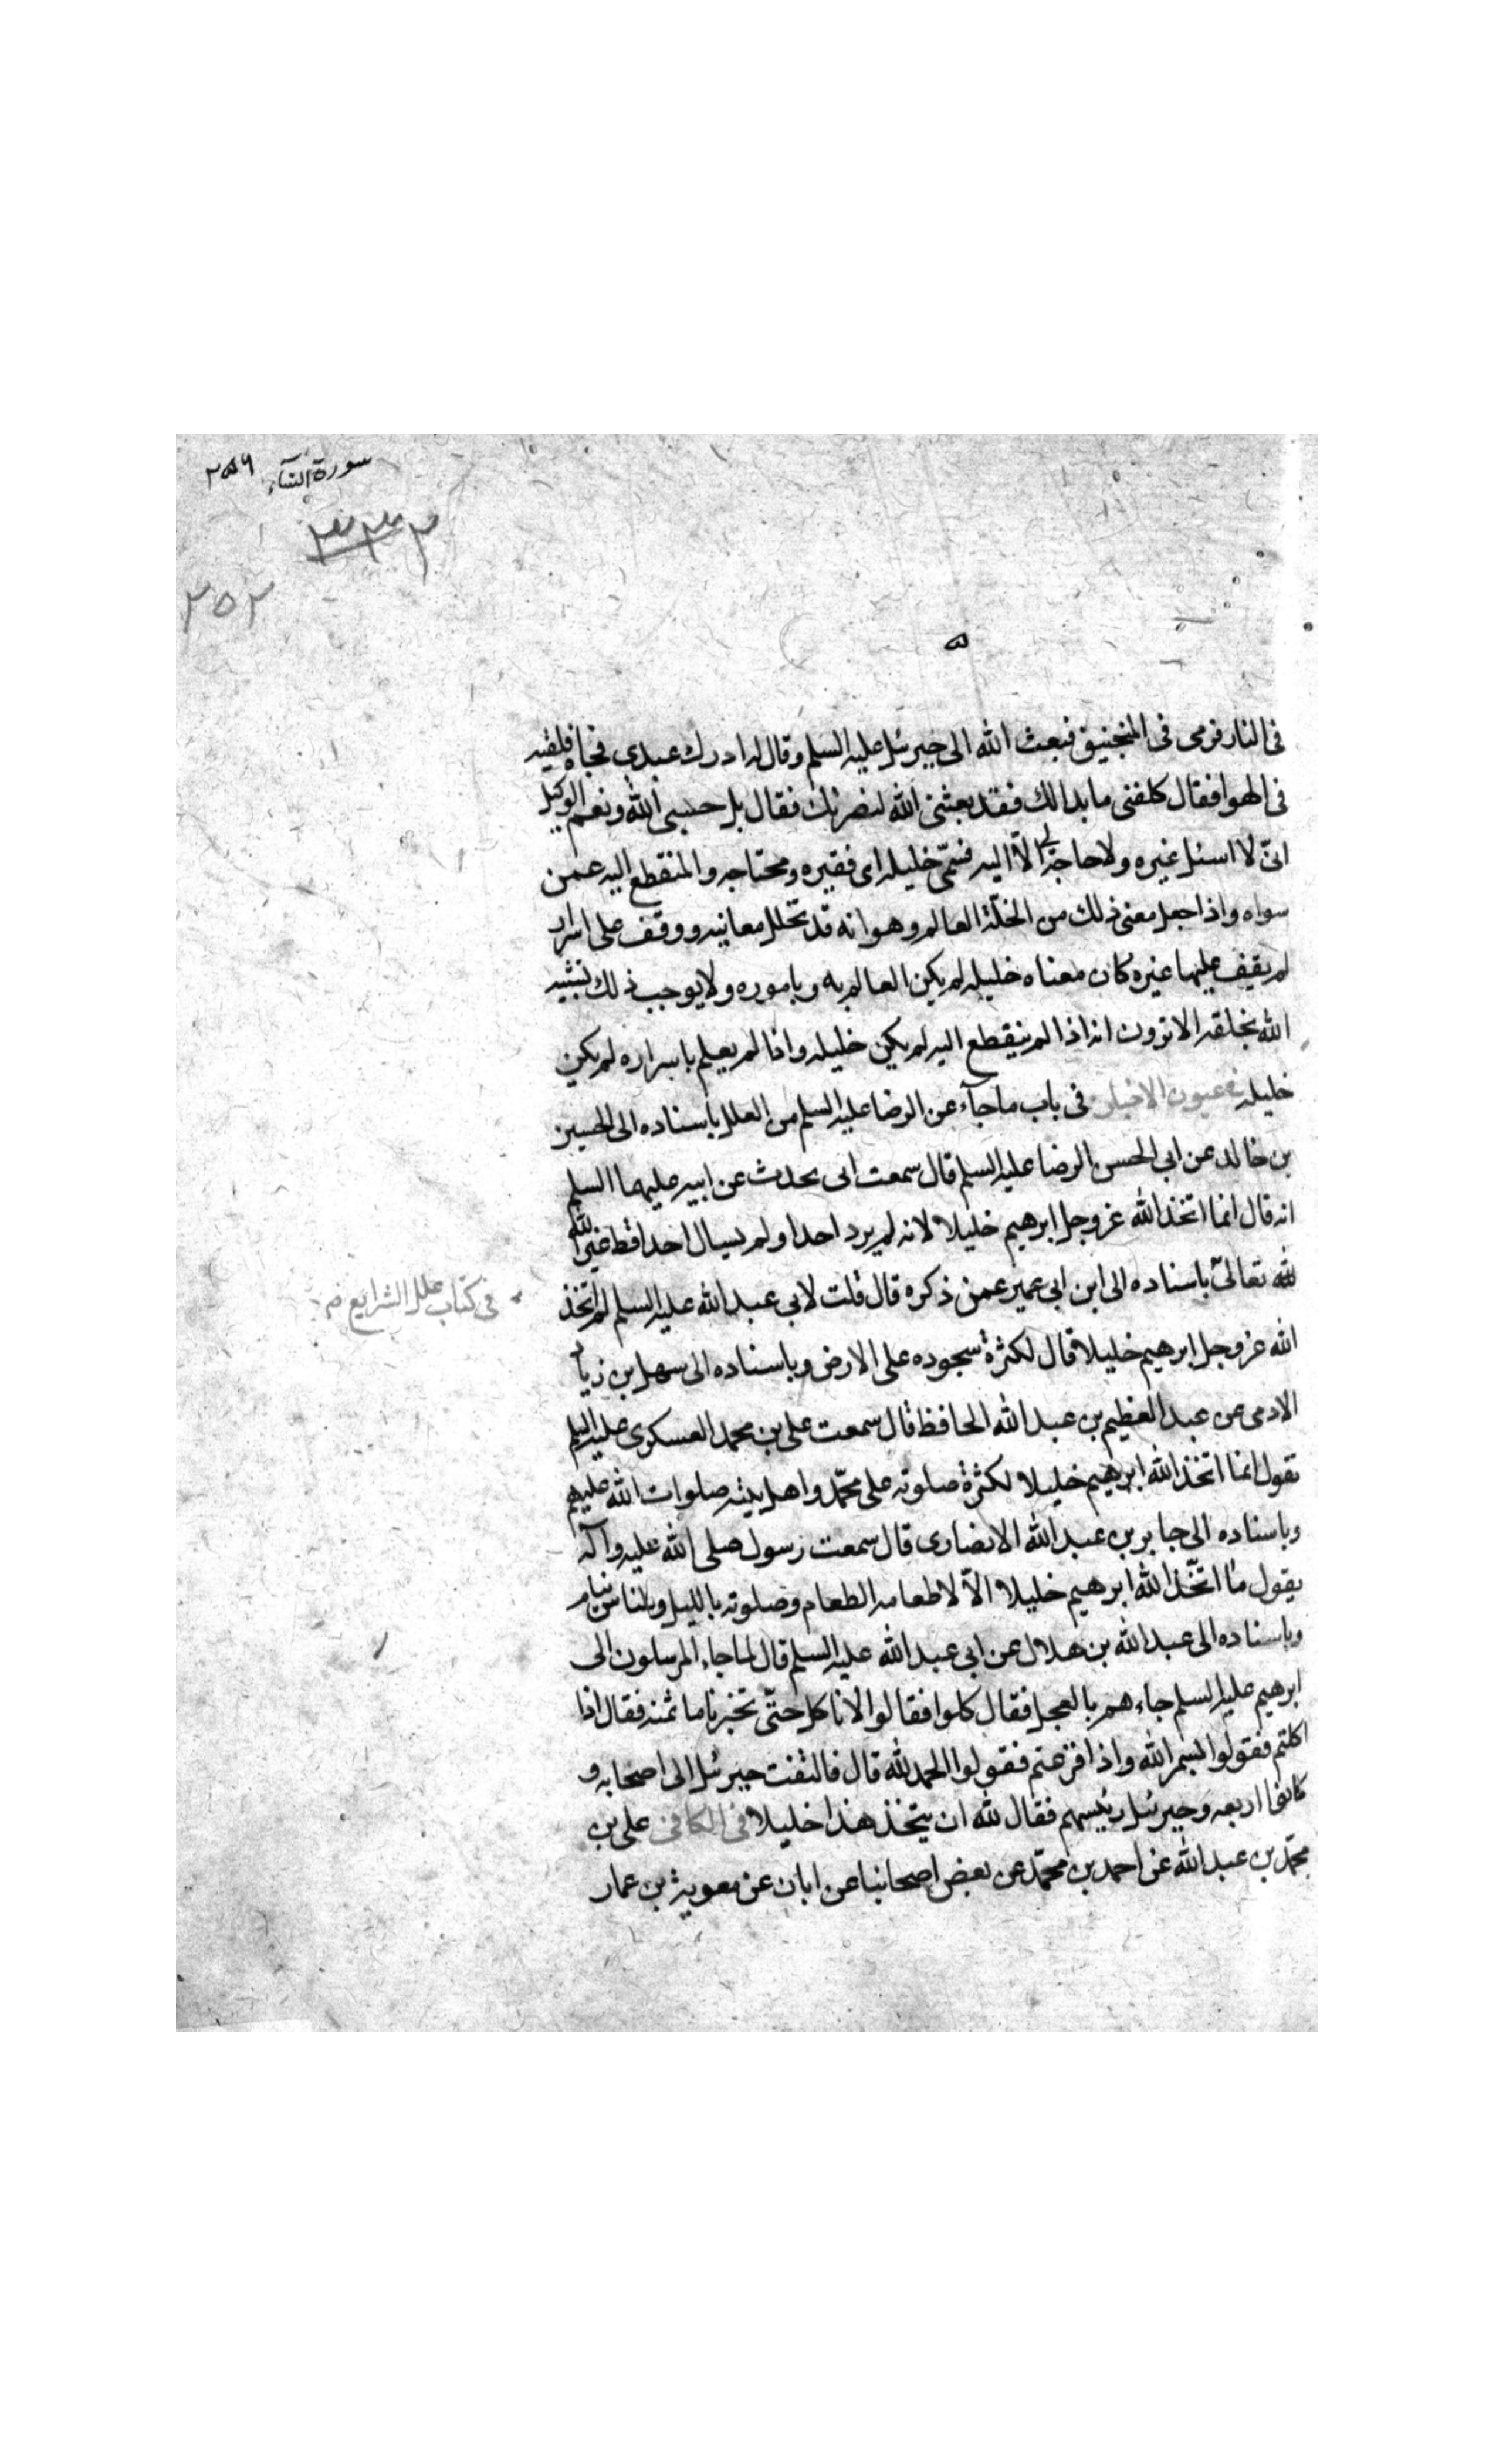 سورة النساء ٢٥٦
٢٣٣
٢٥٢
فى النار فرمى فى المنجنيق فبعث الله الى جبرئيل عليه السلم وقال له ادرك عبدى فجاه فلقيه
فى الهوا فقال كلفنى ما بدا لك فقد بعثنى الله لنصرتك فقال بل حسبى الله ونعم الوكيل
انى لا اسئل غيره ولا حاجة لى الا اليه فسمى خليله اى فقيره ومحتاجه والمنقطع اليه عمن
سواه واذا جعل معنى ذلك من الخلة العالم وهو انه قد تخلل معانيه ووقف على اسرار
لم يقف عليها غيره كان معناه خليله لم يكن العالم به وباموره ولا يوجب ذلك تشبيه
الله بخلقه الا ترون انه اذا لم ينقطع اليه لم يكن خليله واذا لم يعلم باسراره لم يكن
خليله فى عيون الاخبار فى باب ما جآء عن الرضا عليه السلم من العلل باسناده الى الحسين
بن خالد عن ابى الحسن الرضا عليه السلم قال سمعت ابى يحدث عن ابيه عليهما السلم
انه قال انما اتخذ الله عز وجل ابرهيم خليلا لانه لم يرد احدا ولم يسال احدا قط غير الله
لله تعالى باسناده الى ابن ابى عمير عمن ذكره قال قلت لابى عبد الله عليه السلم لم اتخذ
فى كتاب علل الشرايع
الله عز وجل ابرهيم خليلا قال لكثرة سجوده على الارض وباسناده الى سهل بن زياد
الادمى عن عبد العظيم بن عبد الله الحافظ قال سمعت على بن محمد العسكرى عليه السلم
يقول انما اتخذ الله ابرهيم خليلا لكثرة صلوته على محمد واهل بيته صلوات الله عليهم
وباسناده الى جابر بن عبد الله الانصارى قال سمعت رسول صلى الله عليه وآله
يقول ما اتخذ الله ابرهيم خليلا الا لاطعامه الطعام وصلوته بالليل والناس نيام
وباسناده الى عبد الله بن هلال عن ابى عبد الله عليه السلم قال لما جاء المرسلون الى
ابرهيم عليه السلم جاءهم بالعجل فقال كلوا فقالوا لا ناكل حتى تخبرنا ما ثمنه فقال اذا
اكلتم فقولوا بسم الله واذا فرغتم فقولوا الحمد لله قال فالتفت جبرئيل الى اصحابه و
كانوا اربعه وجبرئيل رئيسهم فقال لله ان يتخذ هذا خليلا فى الكافى على بن
محمد بن عبد الله عن احمد بن محمد عن بعض اصحابنا عن ابان عن معوية بن عمار